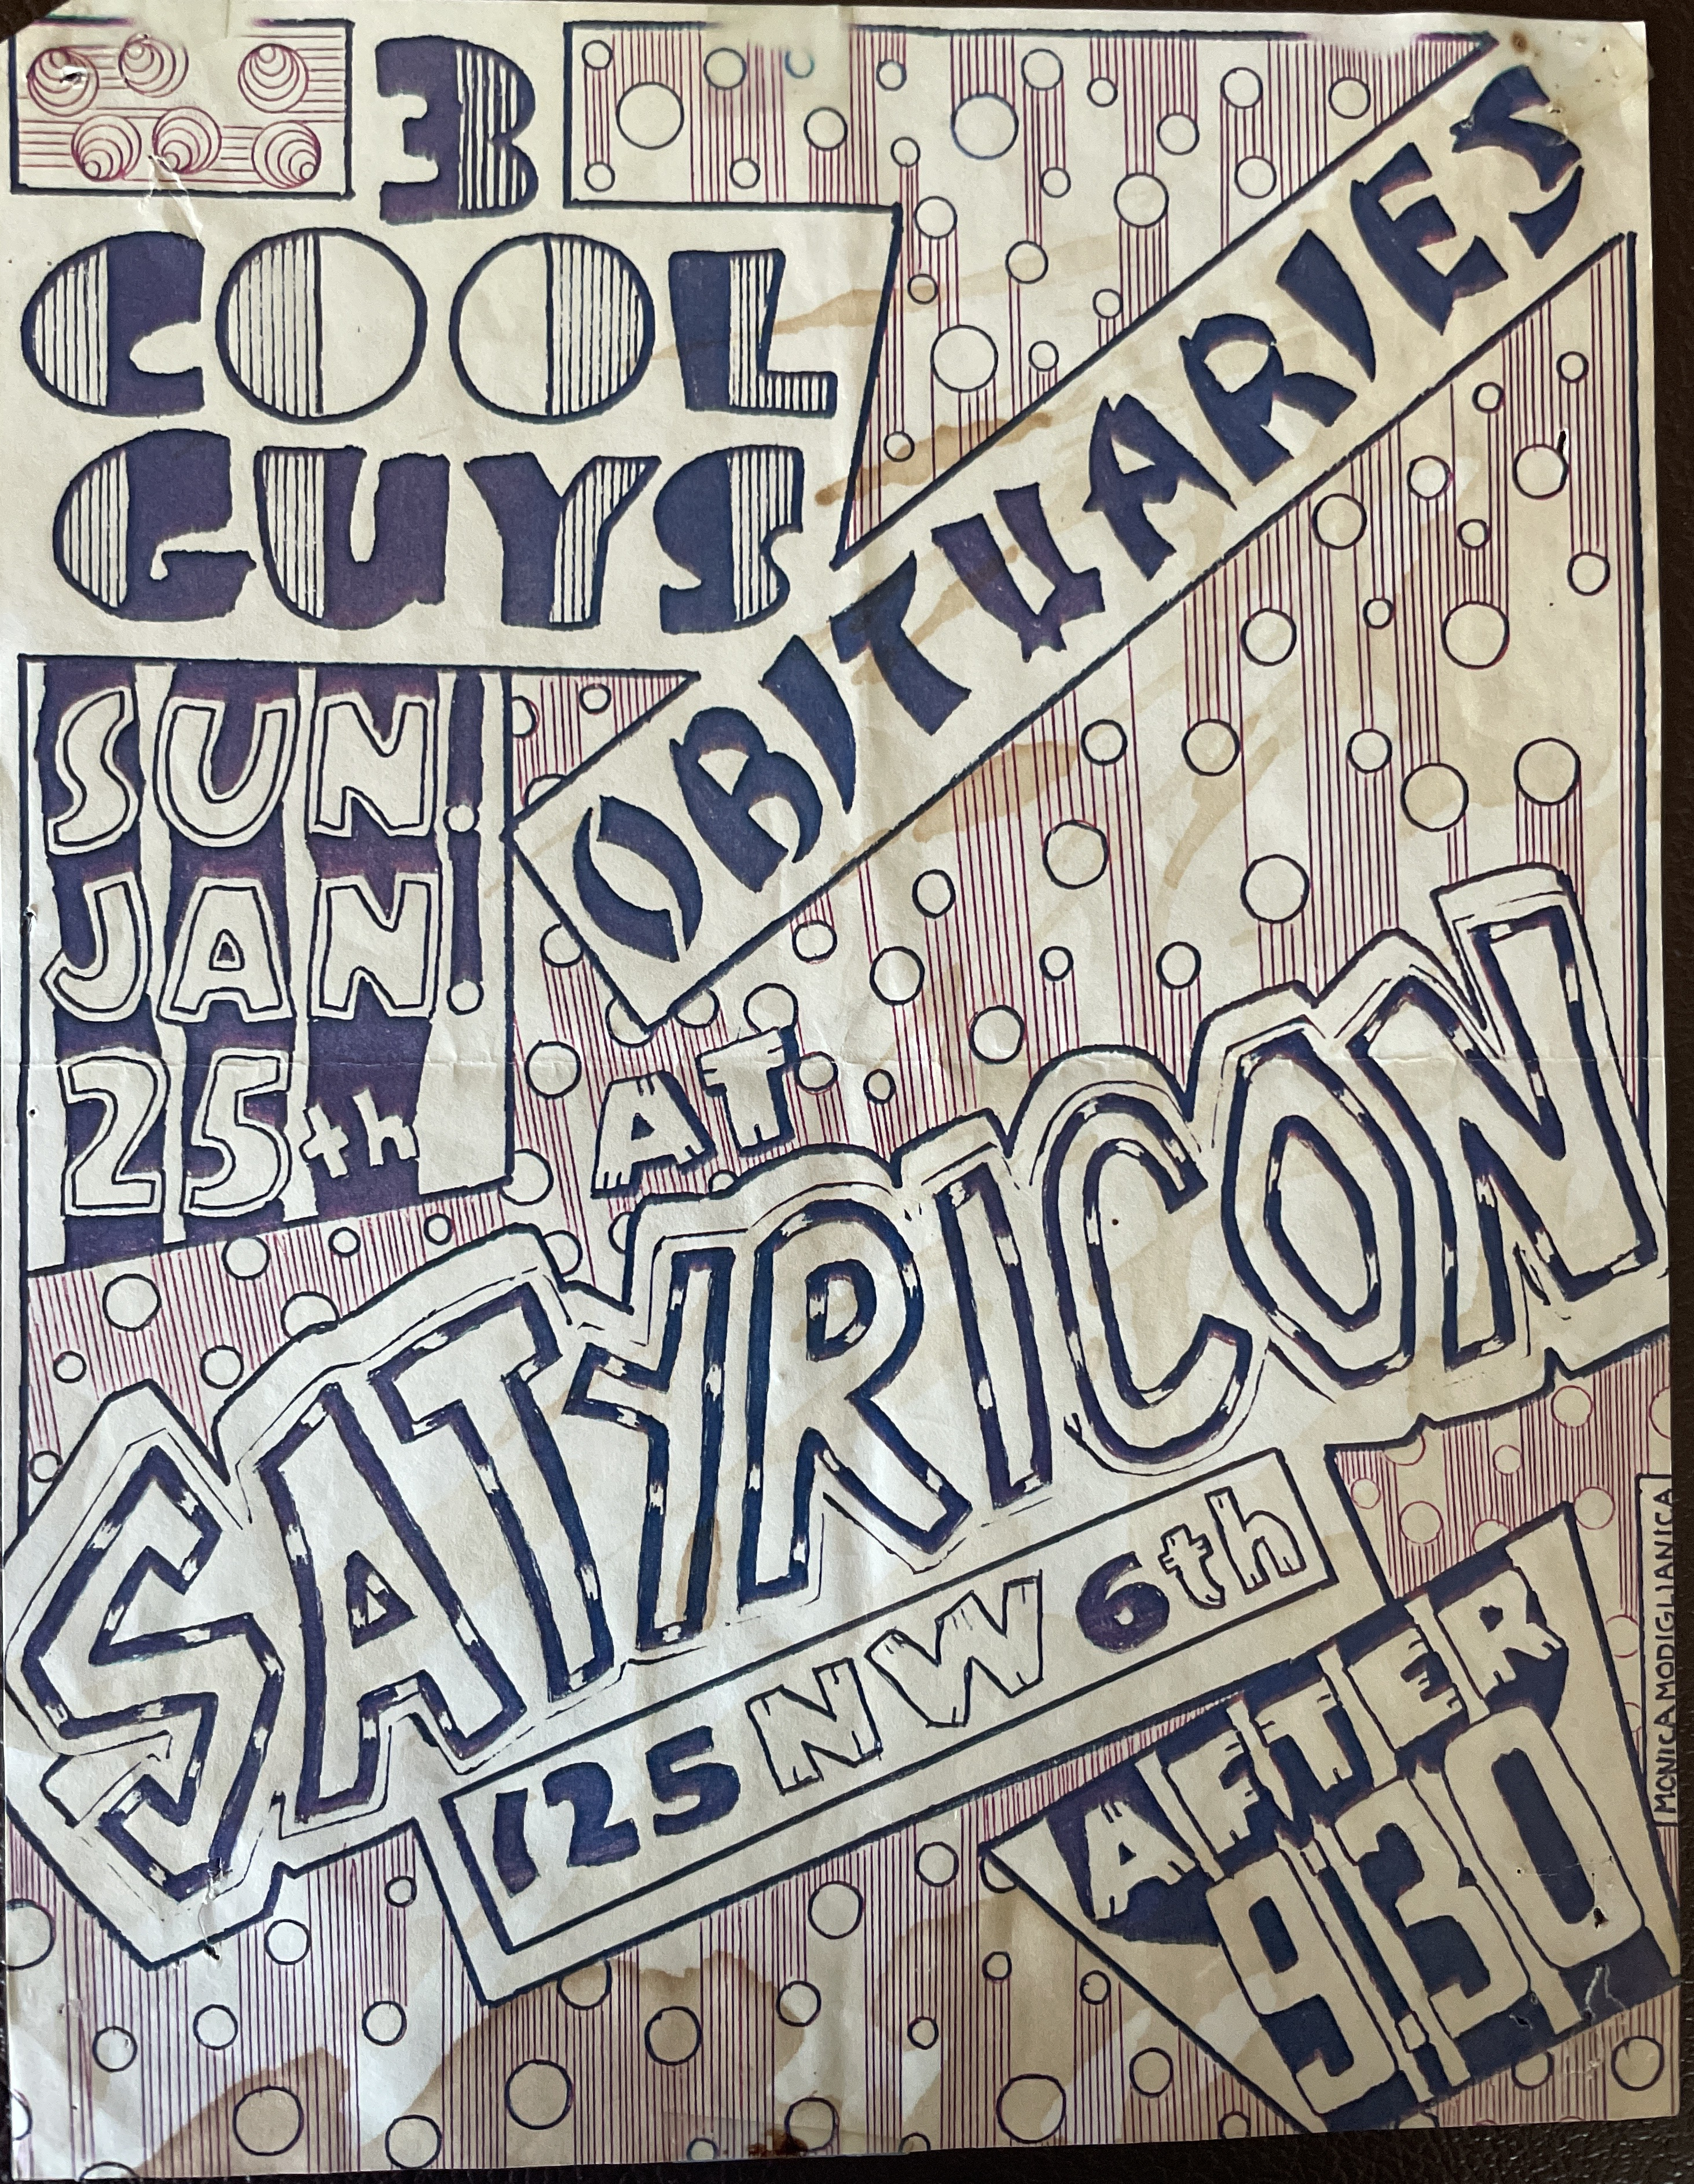 3
COOL
GUYS
OBITUARIES
SUN.
JAN.
25th
AT
SATYRICON
125 NW 6th
AFTER
9:30
MONICA MODIGLIANICA